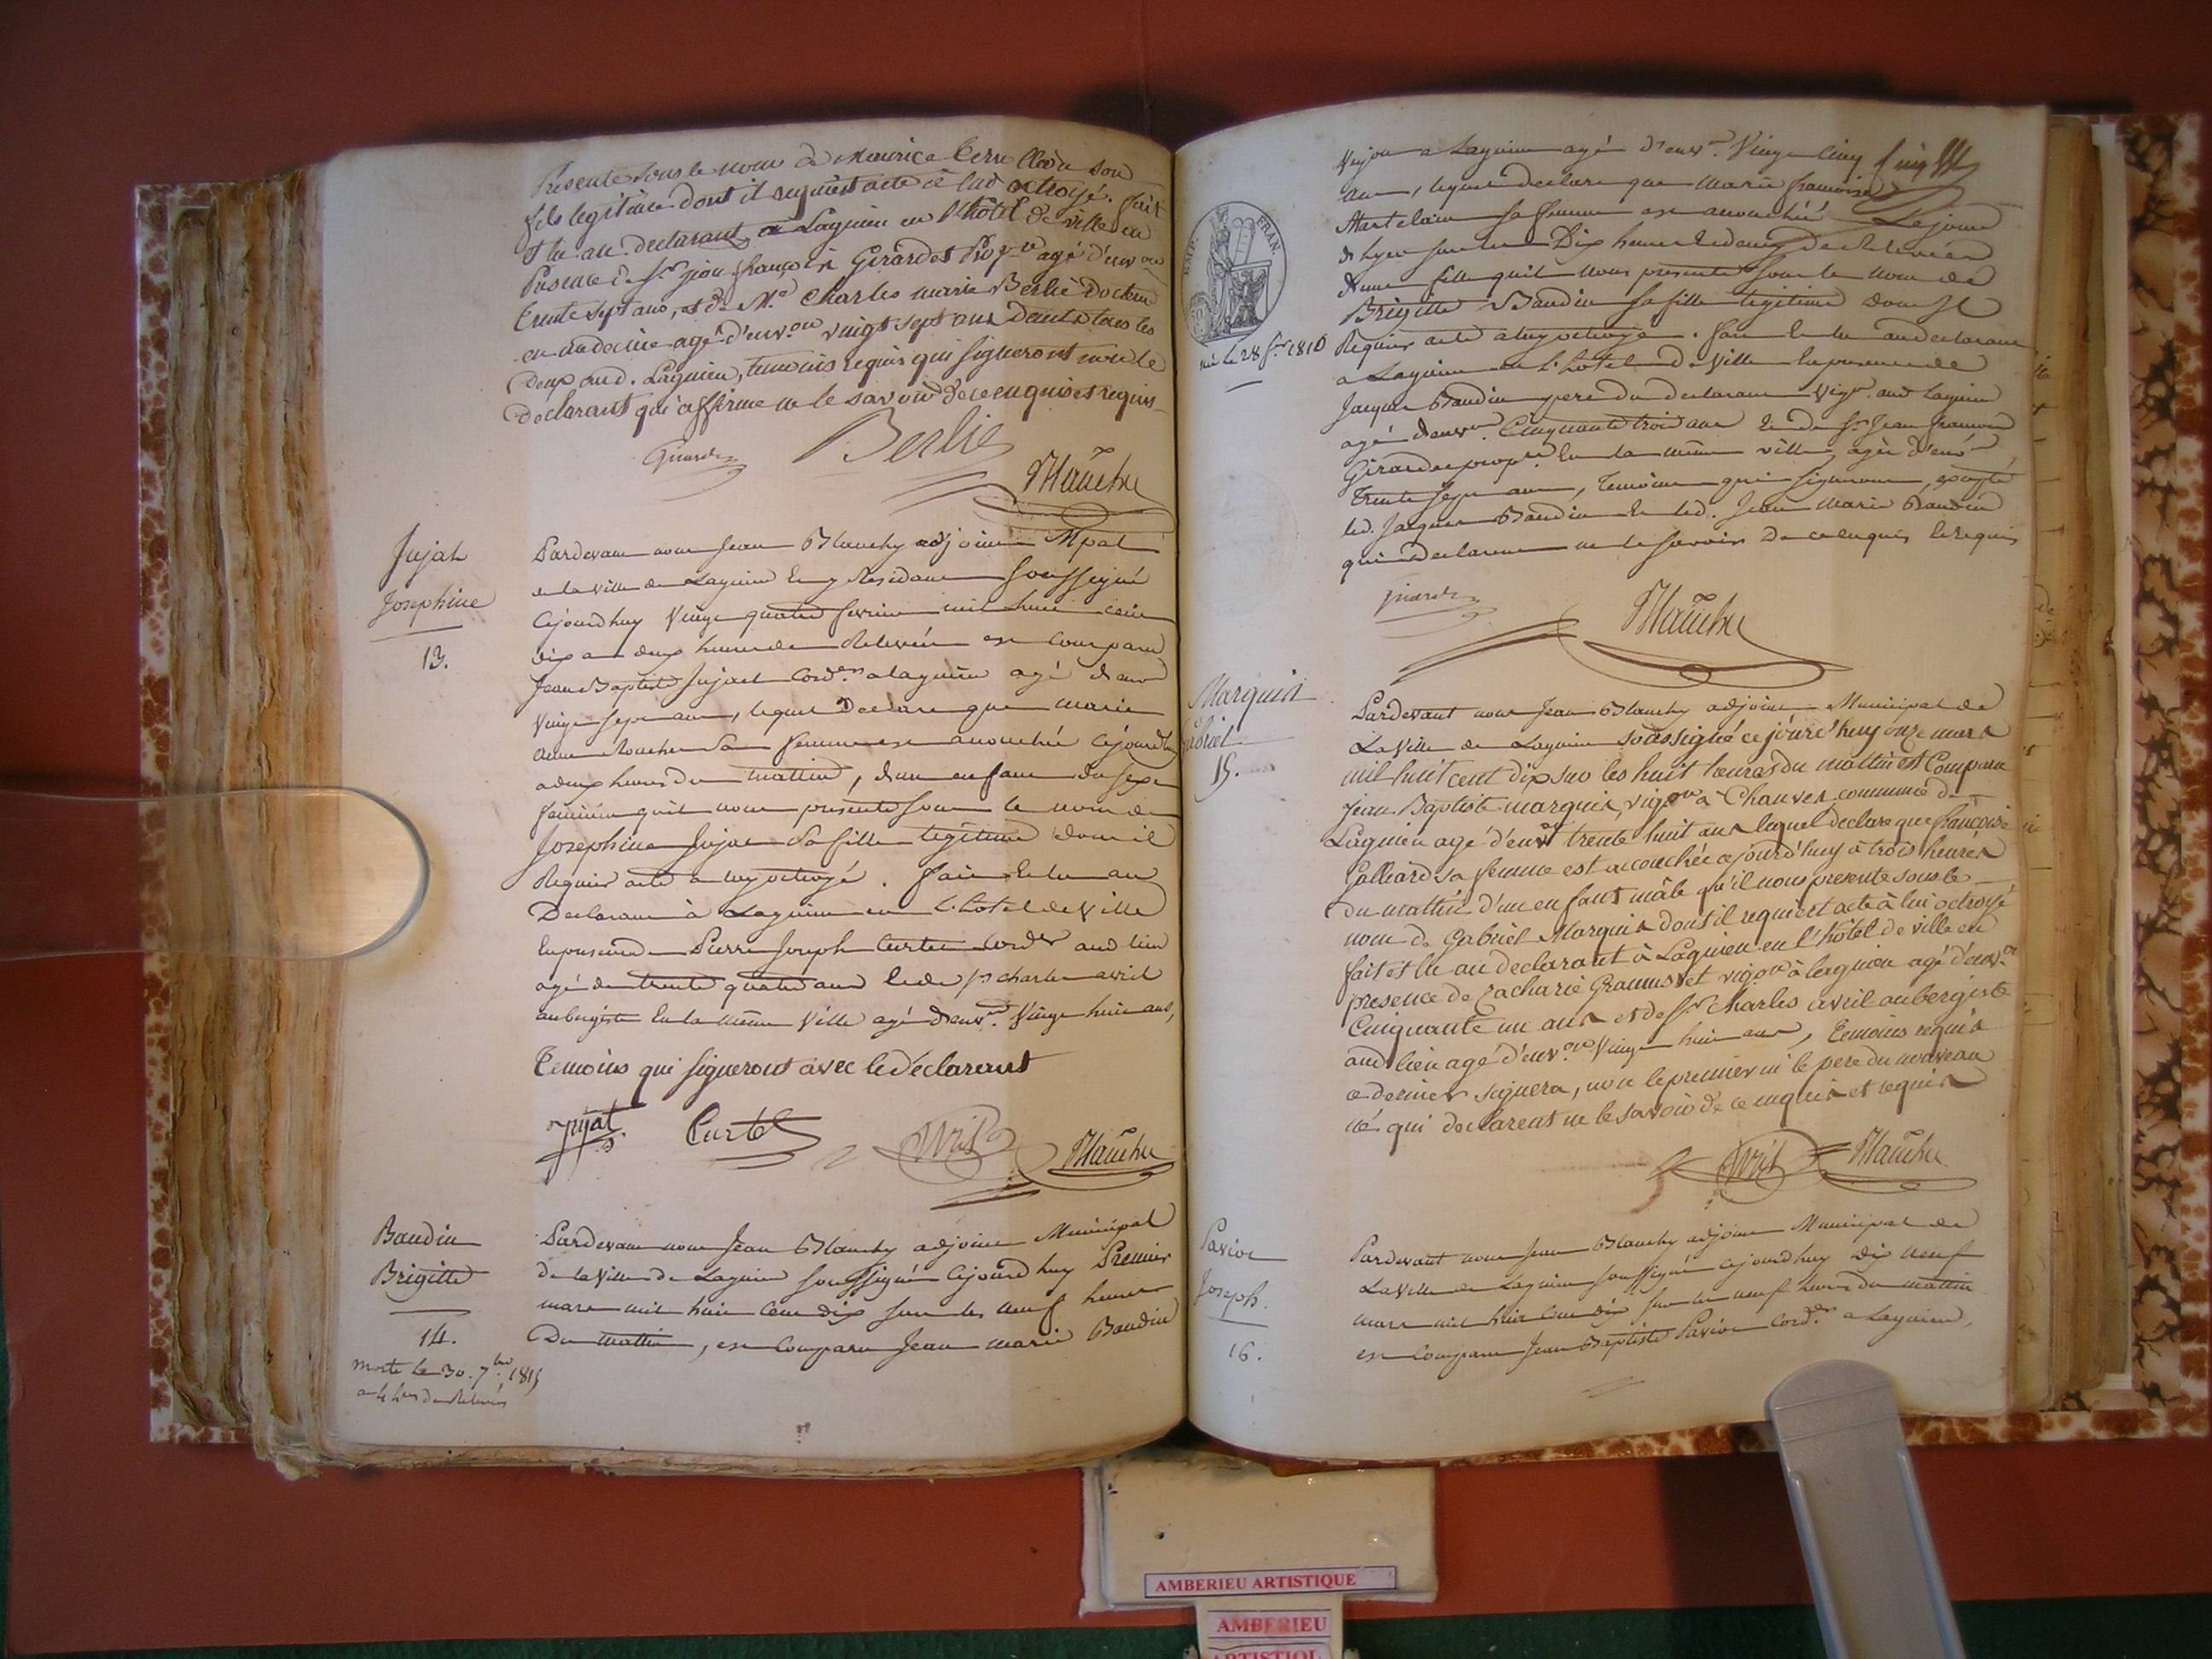 Presente sous le nom de Maurice son
fils legitime dont il requiert acte à lui octroyé. fait
et lu au declarant a Lagnieu en l'hôtel de ville en
Presence de Sr jean françois Girardet Propre agé d'envon
trente sept ans, et de Mr Charles marie Berlié Docteur
en medecine agé d'envon vingt sept ans tous les
deux aud. Lagnieu, temoins requis qui signeront non le
declarant qui affirme ne le savoir de ce enquis et requis
Girardet
Berlié
Blanchy
Jujat
Josephine
13.
Pardevant nous Jean Blanchy adjoint Mpal
de la ville de Lagnieu y Residant Soussigné
Cejourdhuy Vingt quatre fevrier mil huit cent
dix a deux heures de Relevée est Comparu
Jean Baptiste Jujat Cordr a Lagnieu agé d'env
Vingt sept ans, lequel Declare que Marie
anne Sa femme est accouchée cejourdhuy
a deux heures du mattin, d'un enfant du sexe
feminin quil nous presente sous le nom de
Josephine Jujat Sa fille legitime dont il
Requier acte a luy octroyé. fait et lu au
Declarant à Lagnieu en l'hotel de Ville
En presence de Pierre Joseph Curtet Cordr aud lieu
agé de trente quatre ans et de Sr charles avril
aubergiste En la même Ville agé d'envn Vingt huit ans,
Temoins qui signeront avec le déclarant
Jujat
Curtet
Avril
Blanchy
Baudin
Brigitte
14.
morte le 30. 7bre 1815
a 4 hres de Relevée
Pardevant nous Jean Blanchy adjoint Municipal
de la Ville de Lagnieu soussigné Cejourd huy Premier
mars mil huit Cent dix sur les neuf heures
Du mattin, est Comparu Jean marie Baudin
Vigon a Lagnieu agé d'envn Vingt Cinq
ans, lequel declare que Marie françoise
Martelain sa femme est accouchée Le jour
d'hyer sur les Dix heures de Relevée
d'une fille quil nous presente sous le nom de
Brigitte Baudin sa fille legitime dont Il
Requier acte a luy octroyé. fait et lu au declarant
a Lagnieu en l'hôtel de Ville En presence de
Jacques Baudin pere du declarant Vigon aud Lagnieu
agé d'envn Cinquante trois ans Et de Sr Jean françois
Girardet propre En la même ville agé d'envn
Trente sept ans, Temoins qui signeront, excepté
led. Jacques Baudin et led. Jean Marie Baudin
qui Declarent ne le savoir De ce enquis et requis
EMP. FRAN.
né le 28 fer 1810
Girardet
Blanchy
Marquis
Gabriel
15.
Pardevant nous Jean Blanchy adjoint Municipal de
La Ville de Lagnieu soussigné ce jourd'huy onze mars
mil huit cent dix sur les huit heures du mattin est Comparu
jean Baptiste marquis, vigon à Chauves commune de
Lagnieu agé d'envn trente huit ans lequel declare que françoise
Galliard sa femme est accouchée cejourd'huy à trois heures
du mattin d'un enfant mâle qu'il nous presente sous le
nom de Gabriel Marquis dont il requiert acte à lui octroyé
fait et lu au declarant à Lagnieu en l'hôtel de ville en
presence de Zacharie vigon à Lagnieu agé d'envon
Cinquante un ans et de Sr Charles avril aubergiste
aud lieu agé d'envon Vingt huit ans, Temoins requis
ce dernier signera, non le premier ni le pere du nouveau
né qui declarent ne le savoir de ce enquis et requis
Avril
Blanchy
Pavion
Joseph.
16.
Pardevant nous Jean Blanchy adjoint Municipal de
La Ville de Lagnieu soussigné cejourdhuy dix neuf
mars mil huit Cent dix sur les neuf heures du mattin
est Comparu Jean Baptiste Pavion Cordr a Lagnieu
AMBERIEU ARTISTIQUE
AMBERIEU
ARTISTIQUE